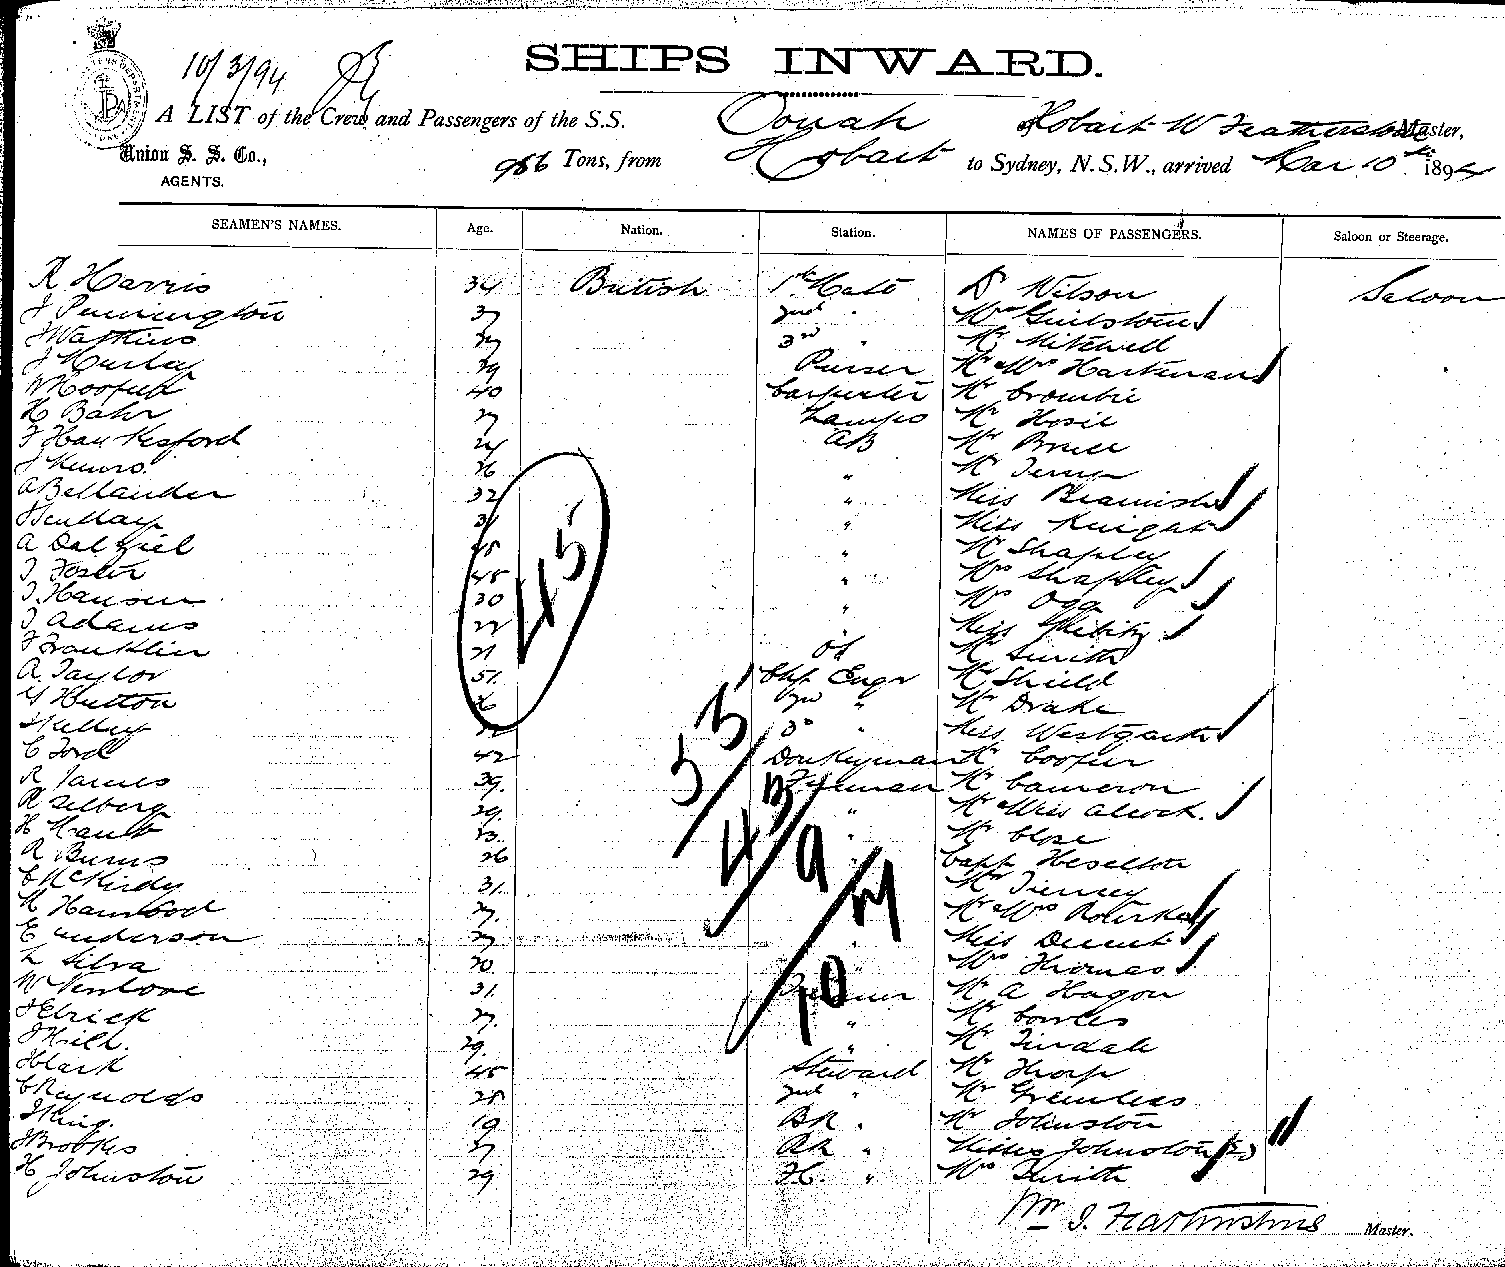 SHIPS INWARD.
10/3/94
A LIST of the Crew and Passengers of the S.S. Oonah of Hobart W Featherstone Master,
Union S. S. Co., AGENTS.
986 Tons, from Hobart to Sydney, N.S.W., arrived Mar 10th 1894
SEAMEN'S NAMES. Age. Nation. Station. NAMES OF PASSENGERS. Saloon or Steerage.
R Harris 34 British 1st Mate Dr Wilson Saloon
J Pennington 37 2nd "
J Watkins 3rd " Mr Mitchell
J Hurley 29 Purser Mr & Mrs Hartman
W Hooper 40 Carpenter Mr Crombie
H Bahr 27 Lamps Mr Hosie
F Hankesford 24 AB Mr Bruce
J Munro 26 " Mr Terry
A Bellander 32 " Miss Beamish
" Miss Knight
A Dalziel 45 " Mr Shapley
J Foster 45 " Mrs Shapley
J. Hansen 30 " Mrs Ogg
J Adams 22 " Miss
F Franklin 21 OS Mr Smith
A. Taylor 51. Chf Engr Mr Shield
G Hutton 36 2nd " Mr Drake
J Kelley 3rd " Miss Westgarth
C Ford 42 Donkeyman Mr Cooper
R James 39. Fireman Mr Cameron
R Selberg 29. " Mr & Miss Alcock.
H 23. " Mr Close
R Burns 26 Capt Heselton
C McKirdy 31. Mr Tierney
R Hamwood 27. Mr & Mrs
C Anderson 27 " Miss
L Silva 30. " Mrs Thomas
W Venlove 31. Trimmer Mr A Hagon
27. " Mr Cowles
J Hill. 29. " Mr Tindale
H Clark 45 Steward Mr Thorp
C Reynolds 25 2nd " Mr Greenlees
J King. 19 BR. " Mr Johnston
J Brookes 27 RR " Misses Johnston (2)
H Johnston 29 FC. " Mrs Smith
45
53
43
9
10
Wm J. Featherstone Master.